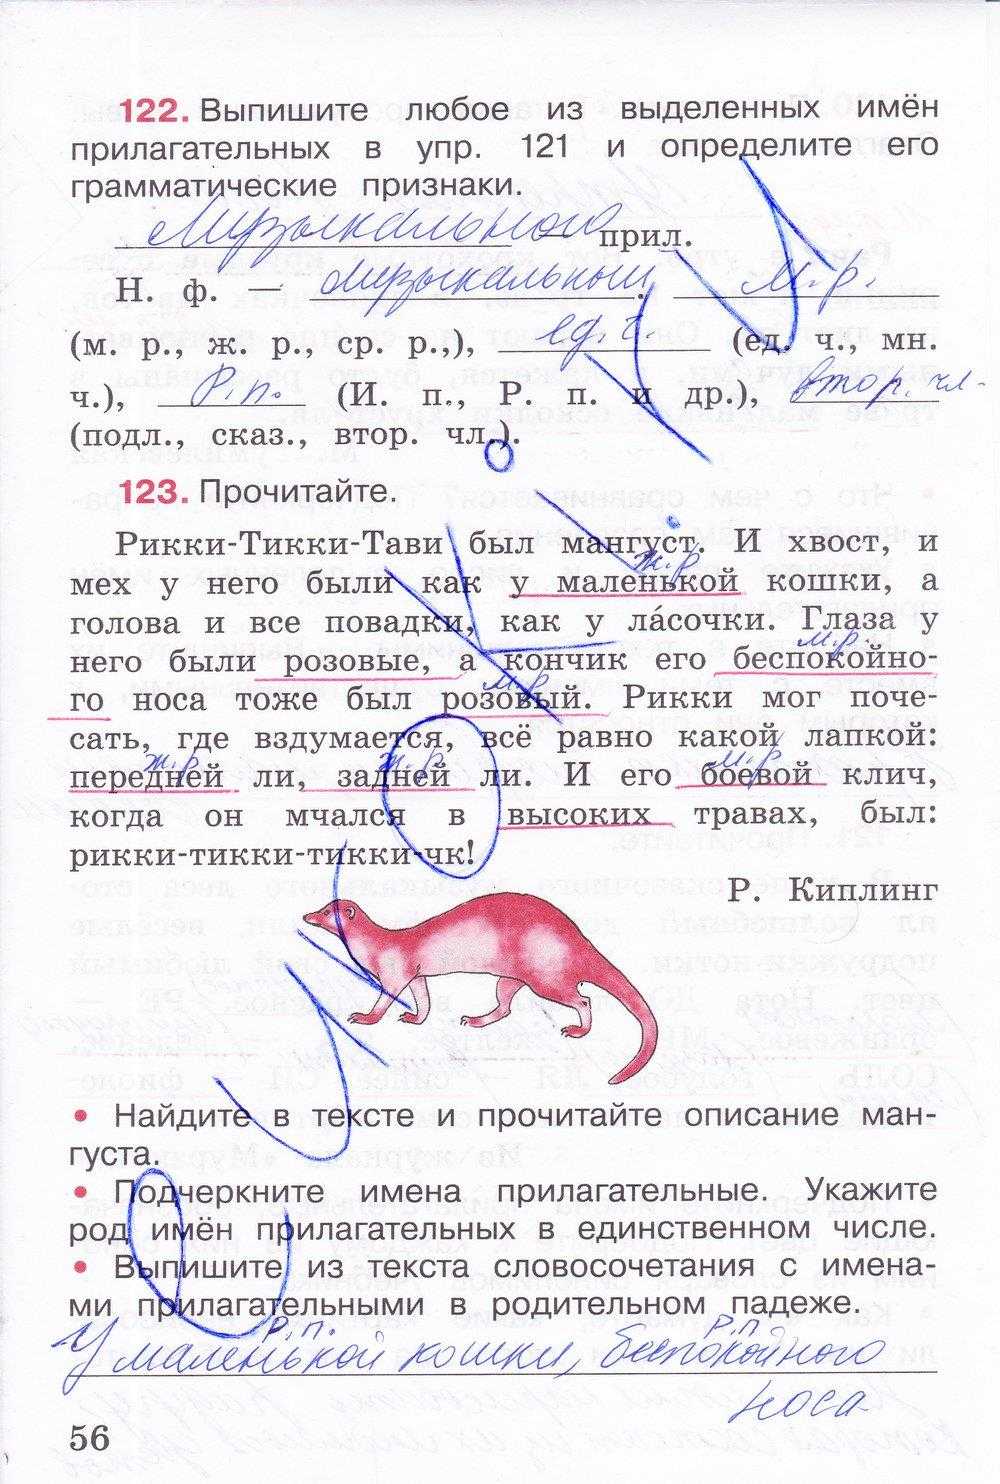 122. Выпишите любое из выделенных имён
прилагательных в упр. 121 и определите его
грамматические признаки.
Музыкального — прил.
Н. ф. — музыкальный. м.р.
(м. р., ж. р., ср. р.,), ед.ч. (ед. ч., мн.
ч.), Р.п. (И. п., Р. п. и др.), втор. чл.
(подл., сказ., втор. чл.).
123. Прочитайте.
Рикки-Тикки-Тави был мангуст. И хвост, и
ж.р
мех у него были как у маленькой кошки, а
голова и все повадки, как у ла́сочки. Глаза у
м.р
него были розовые, а кончик его беспокойно-
м.р
го носа тоже был розовый. Рикки мог поче-
сать, где вздумается, всё равно какой лапкой:
ж.р ж.р м.р
передней ли, задней ли. И его боевой клич,
когда он мчался в высоких травах, был:
рикки-тикки-тикки-тикки-чк!
Р. Киплинг
• Найдите в тексте и прочитайте описание ман-
густа.
• Подчеркните имена прилагательные. Укажите
род имён прилагательных в единственном числе.
• Выпишите из текста словосочетания с имена-
ми прилагательными в родительном падеже.
Р.п. Р.п.
У маленькой кошки, беспокойного
носа
56